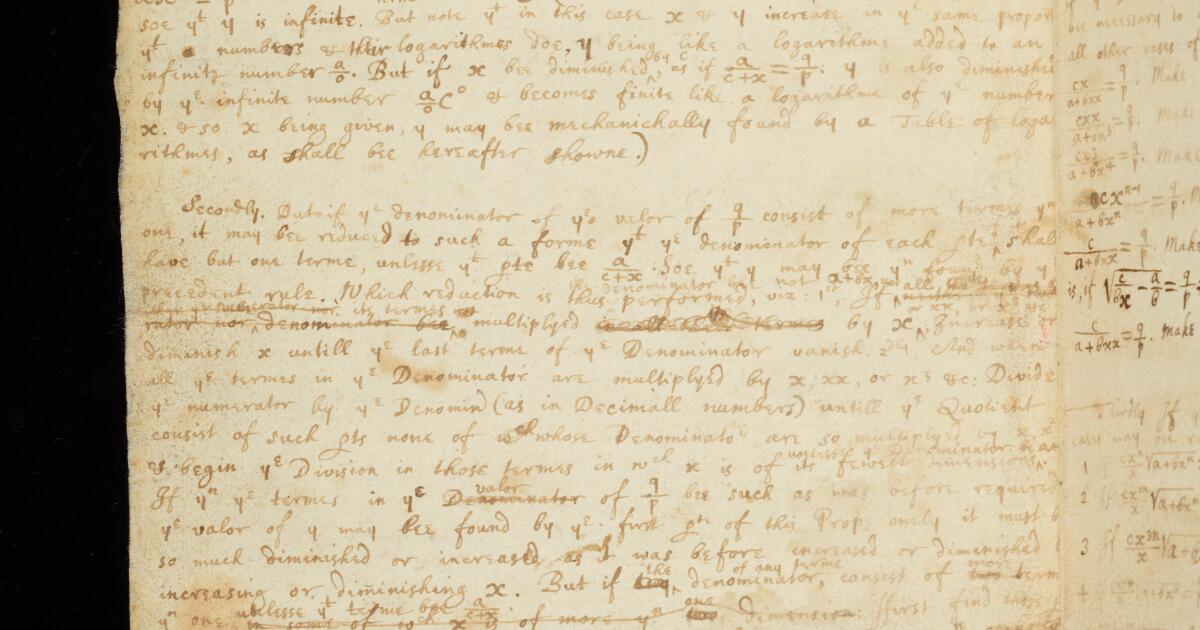 soe yt y is infinite. But note yt in this case x & y increase in ye same propor
yt numbers & their logarithmes doe, y being like a logarithme added to an
infinite number a/0. But if x bee diminished by c, as if a/(c+x)=q/p; y is also diminished
by ye infinite number a/0 c^0 & becomes finite like a logarithme of ye number
x. & so x being given, y may bee mechanichally found by a Table of loga
rithmes, as shall bee hereafter showne.)
Secondly. But if ye denominator of ye valor of q/p consist of more termes yn
one, it may bee reduced to such a forme yt ye denominator of each pte shall
have but one terme, unlesse yt pte bee a/(c+x): Soe yt y may bee yn found by ye
precedent rule. Which reduction is thus performed, viz: 1st, If the denominator bee not a+bx,
rator nor denominator bee its termes multiplyed by x, Increase or
diminish x untill ye last terme of ye Denominator vanish. 2dly And when
all ye termes in ye Denominator are multiplyed by x, xx, or x3 &c: Divide
ye numerator by ye Denomin) (as in Decimall numbers) untill ye Quotient
consist of such pts none of wch whose Denominators are so multiplyed by x, x2
& begin ye Division in those termes in wch x is of its fewest dimensions unlesse ye Denominator be a+
If yn ye termes in ye valor Denominator of q/p bee such as was before required
ye valor of y may bee found by ye first pte of this Prop: onely it must b
so much diminished or increased as it was before increased or diminished
increasing or diminishing x. But if the denominator of any terme consist of more term
yn one unlesse yt terme bee a/(c+x) dimension: ffirst find those
bee necessary to
all other cases of
cx/(a+bxx)=q/p. Make
cxx/(a+bx3)=q/p. Make
cx3/(a+bx4)=q/p. Make
ncx^(n-1)/(a+bx^n)=q/p.
c/(a+bx)=q/p. Make
is, if √(c/bx - a/b)=q/p
c/(a+bxx)=q/p. make
Thirdly If
1 If cx^n/x √(a+bx^n
2 If cx^2n/x √(a+bx
3 If cx^3n/x √(a+
4